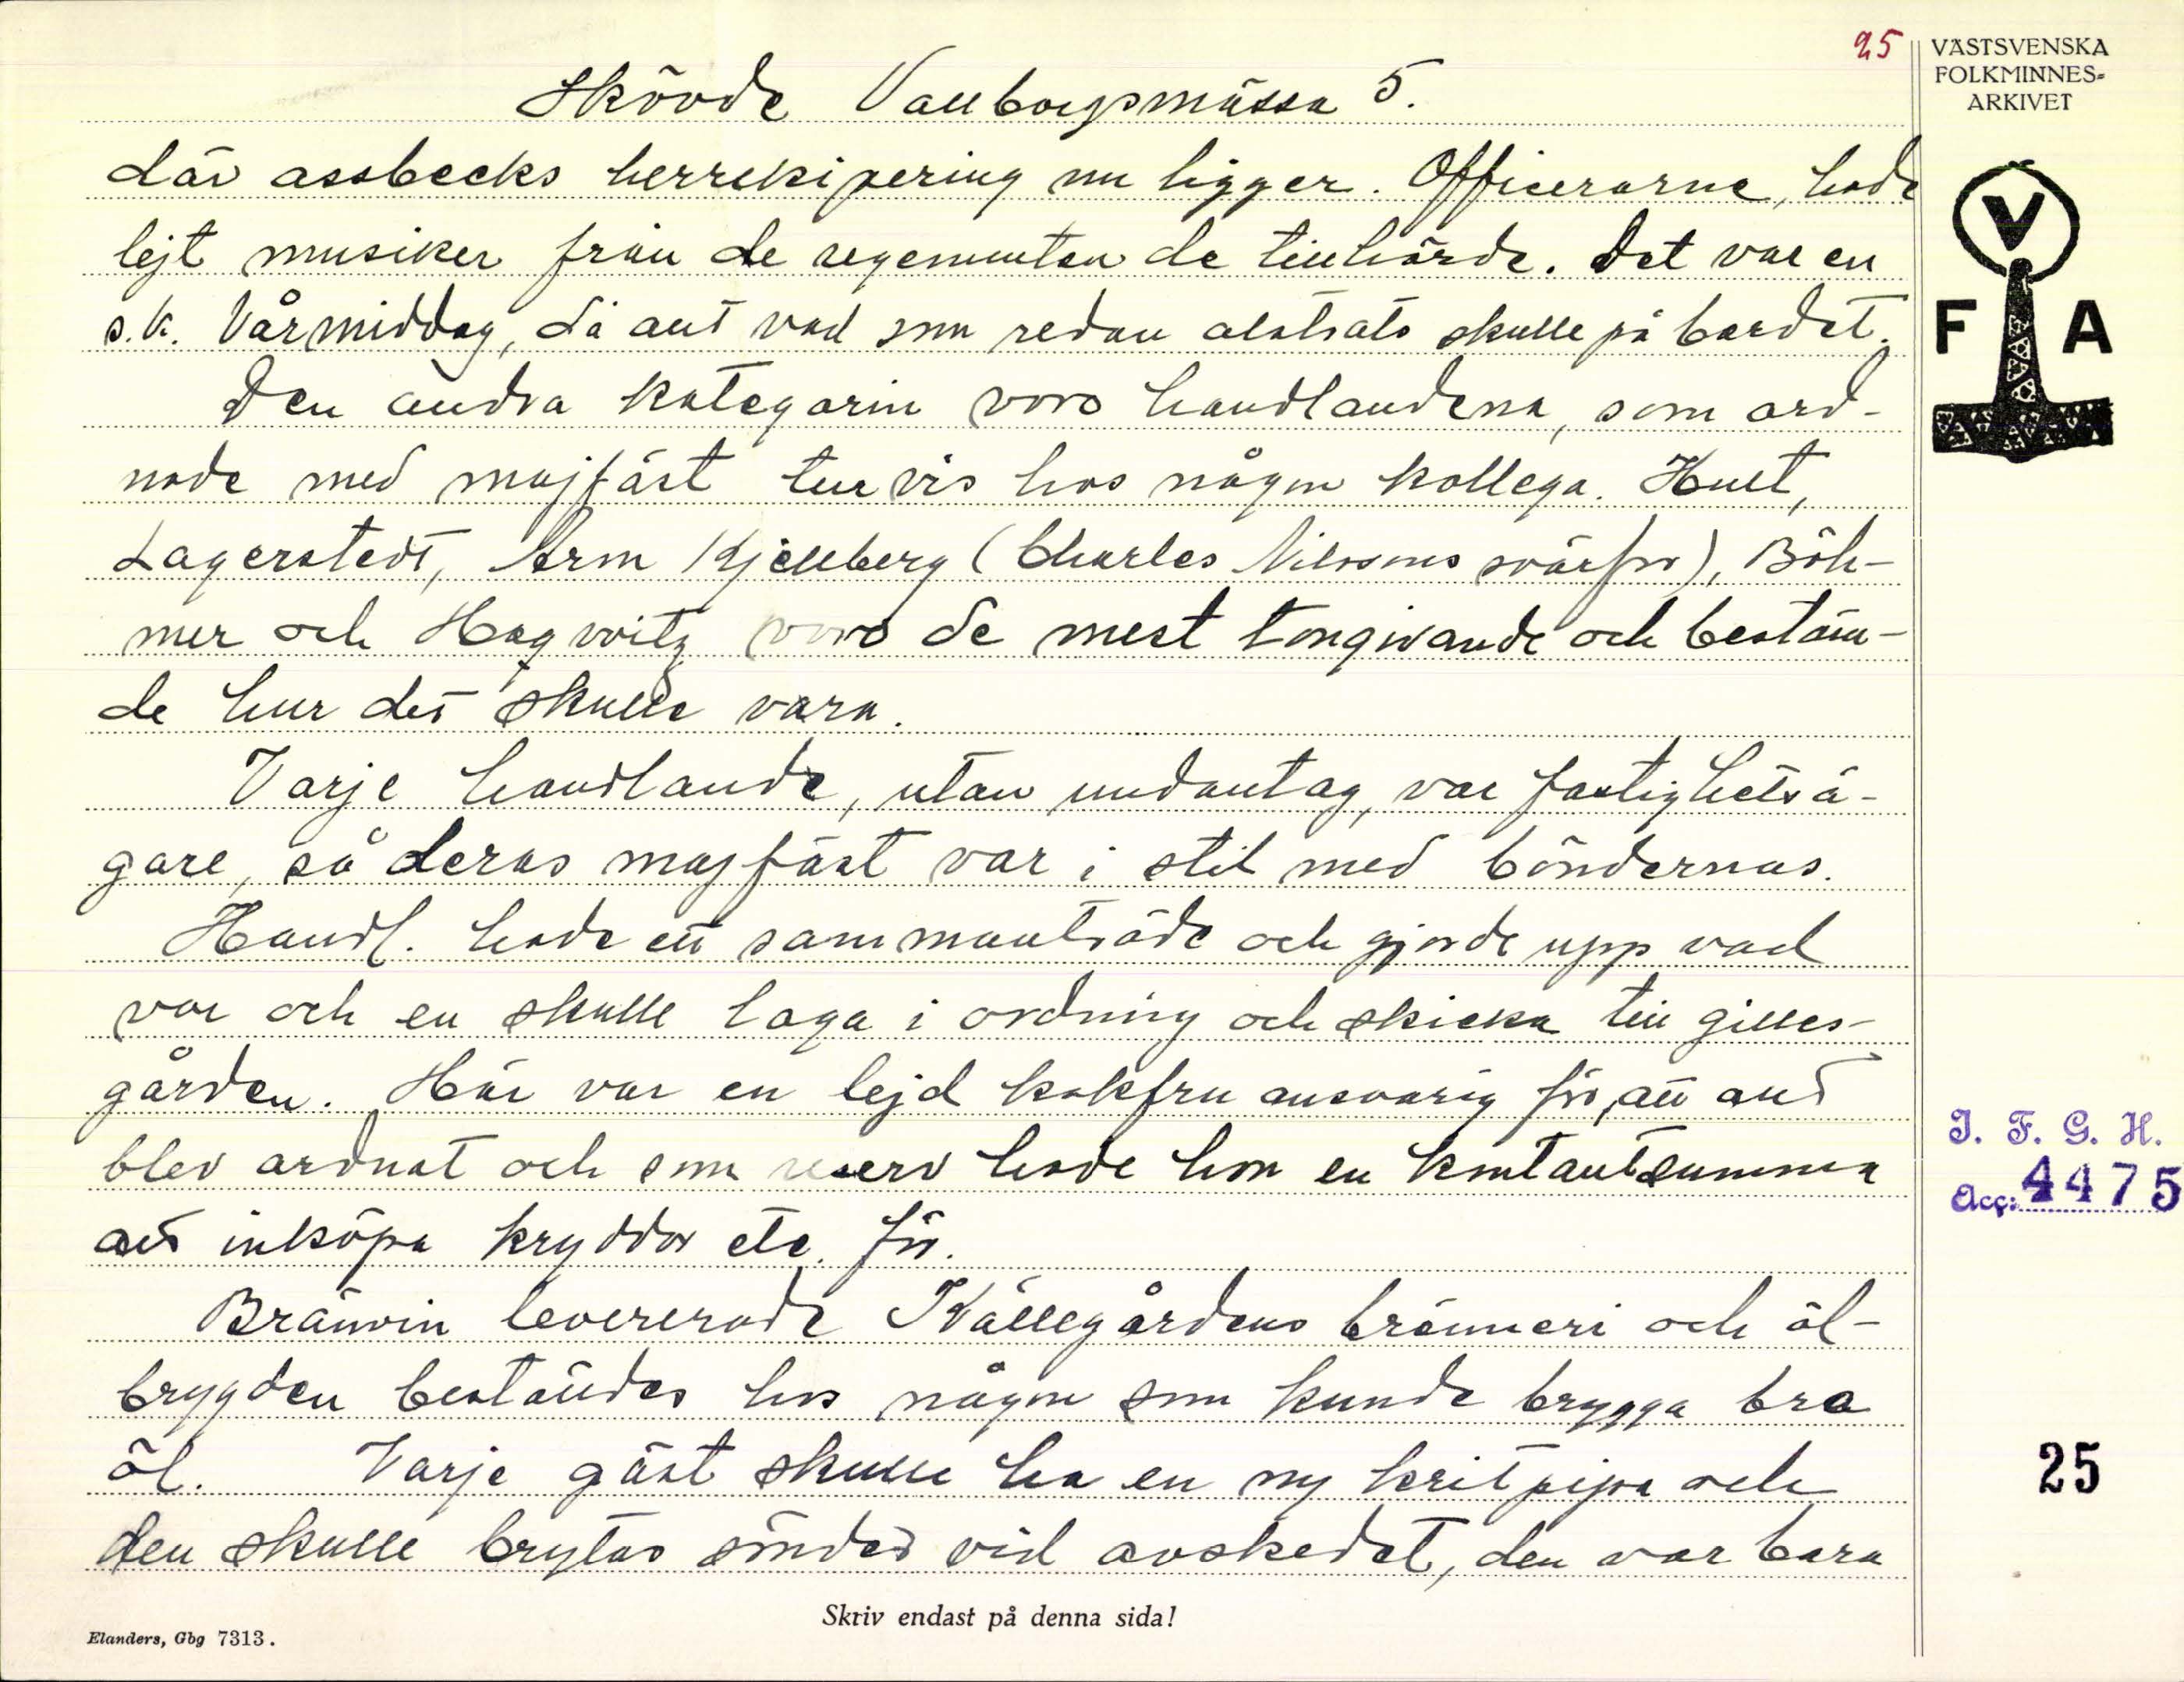 25
VÄSTSVENSKA
FOLKMINNES-
ARKIVET
Skövde Vallborgsmässa 5.
där assbecks herrekipering nu ligger. Officerarne, hade
lejt musiker från de regementen de tillhörde. Det var en
s.k. Vårmiddag, då allt vad som redan alstrats skulle på bordet.
Den andra kategorin voro handlandena, som ord-
nade med majfäst turvis hos någon kollega. Hult,
Lagerstedt, Arm Kjellberg (Charles Nilssons svärfar), Böh-
mer och Hagwitz voro de mest tongivande och bestäm-
de hur det skulle vara.
Varje handlande, utan undantag, var fastighetsä-
gare, så deras majfäst var i stil med böndernas.
Handl. hade ett sammanträde och gjorde upp vad
var och en skulle laga i ordning och skicka till gilles-
gården. Här var en lejd kokfru ansvarig för, att allt
blev ordnat och som reserv hade hon en kontantsumma
att inköpa kryddor etc. för.
Bränvin levererade Källegårdens bränneri och öl-
brygden beställdes hos någon som kunde brygga bra
öl. Varje gäst skulle ha en ny kritpipa och
den skulle brytas sönder vid avskedet, den var bara
V
F A
I. F. G. H.
Acc: 4475
25
Skriv endast på denna sida!
Elanders, Gbg 7313.